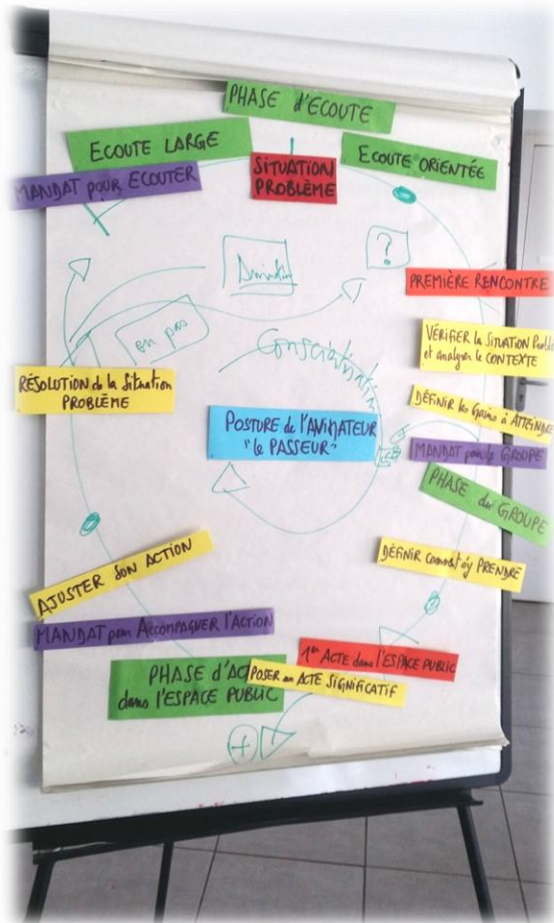 PHASE d'ECOUTE
ECOUTE LARGE
ECOUTE ORIENTÉE
MANDAT POUR ECOUTER
SITUATION
PROBLÈME
?
PREMIÈRE RENCONTRE
en pas
Conscientisation
VÉRIFIER la SITUATION
et analyser le CONTEXTE
RÉSOLUTION de la Situation
PROBLÈME
DÉFINIR les Gains à ATTEINDRE
POSTURE de l'ANIMATEUR
"le PASSEUR"
MANDAT pour le GROUPE
PHASE du GROUPE
DÉFINIR comment s'y PRENDRE
AJUSTER SON ACTION
MANDAT pour ACCOMPAGNER L'ACTION
1er ACTE dans l'ESPACE PUBLIC
PHASE d'AC
dans l'ESPACE PUBLIC
POSER un ACTE SIGNIFICATIF
+